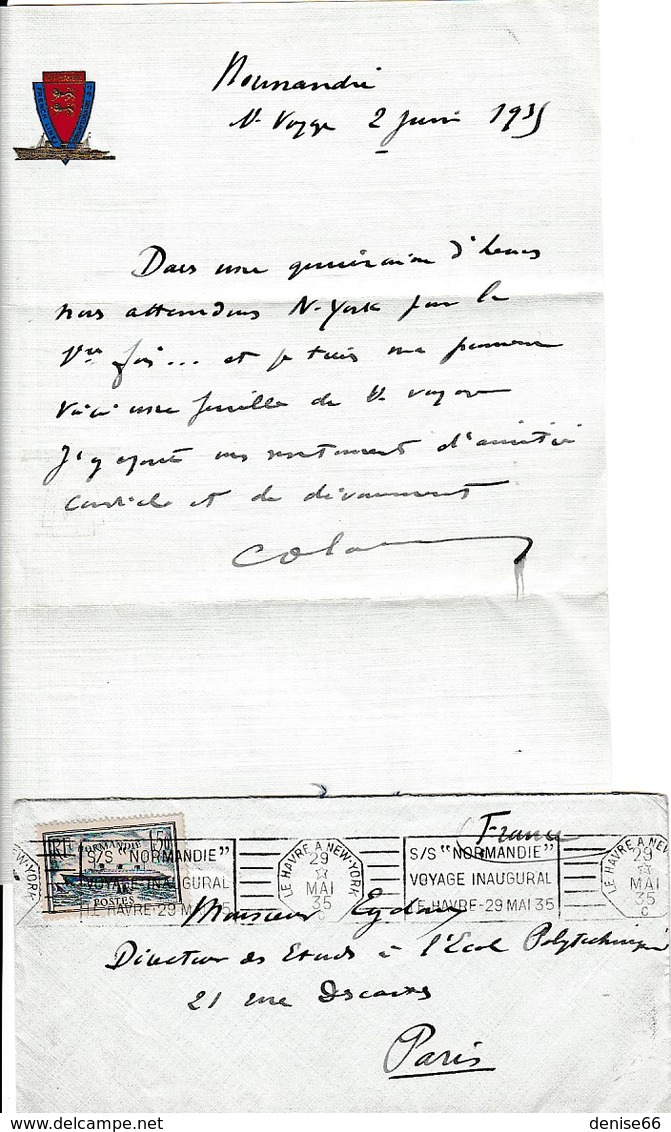 FRENCH LINE
Normandie
1er Voyage 2 Juin 1935
Dans une quinzaine d'heures
nous attendons N-York pour la
1ère fois... et je tiens ma promesse
Voici une feuille de 1er voyage
J'y ajoute mes sentiments d'amitié
cordiale et de dévouement
RF NORMANDIE 1,50
POSTES
NEW-YORK
S/S "NORMANDIE"
VOYAGE INAUGURAL
LE HAVRE-29 MAI 35
LE HAVRE A NEW-YORK
29
MAI
35
C
S/S "NORMANDIE"
VOYAGE INAUGURAL
LE HAVRE-29 MAI 35
LE HAVRE A NEW
29
MAI
35
C
France
Monsieur
Directeur des Etudes à l'Ecole Polytechnique
21 rue Descartes
Paris
delcampe.net
denise66